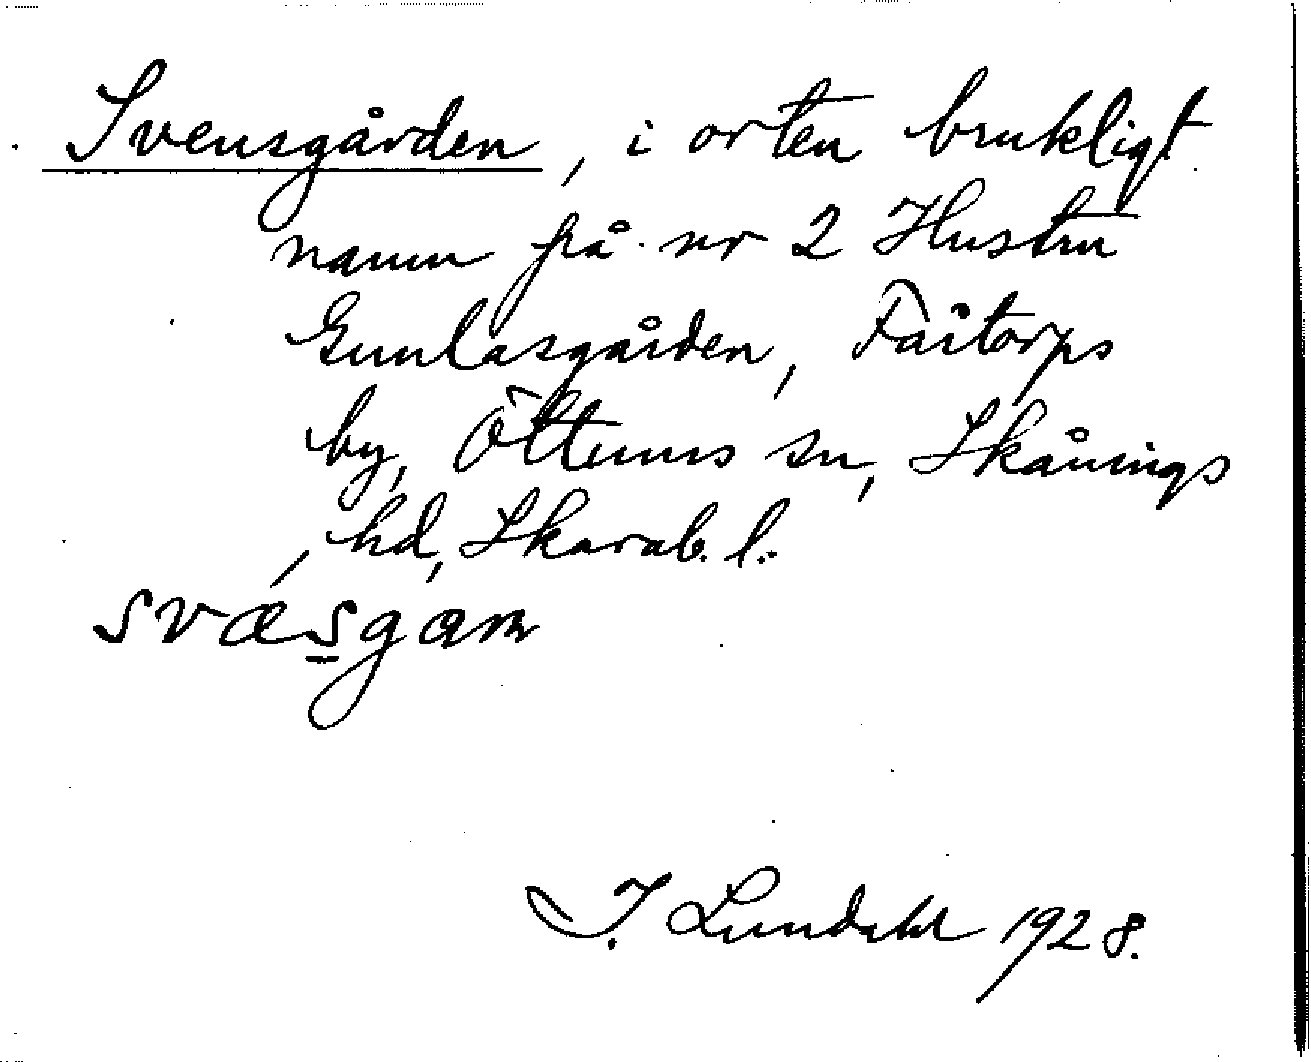 Svensgården, i orten brukligt
namn på nr 2 Hustru
Gunlasgården, Fåtorps
by, Öttums sn, Skånings
hd, Skarab. l.
svæsgaɳ
I. Lundahl 1928.